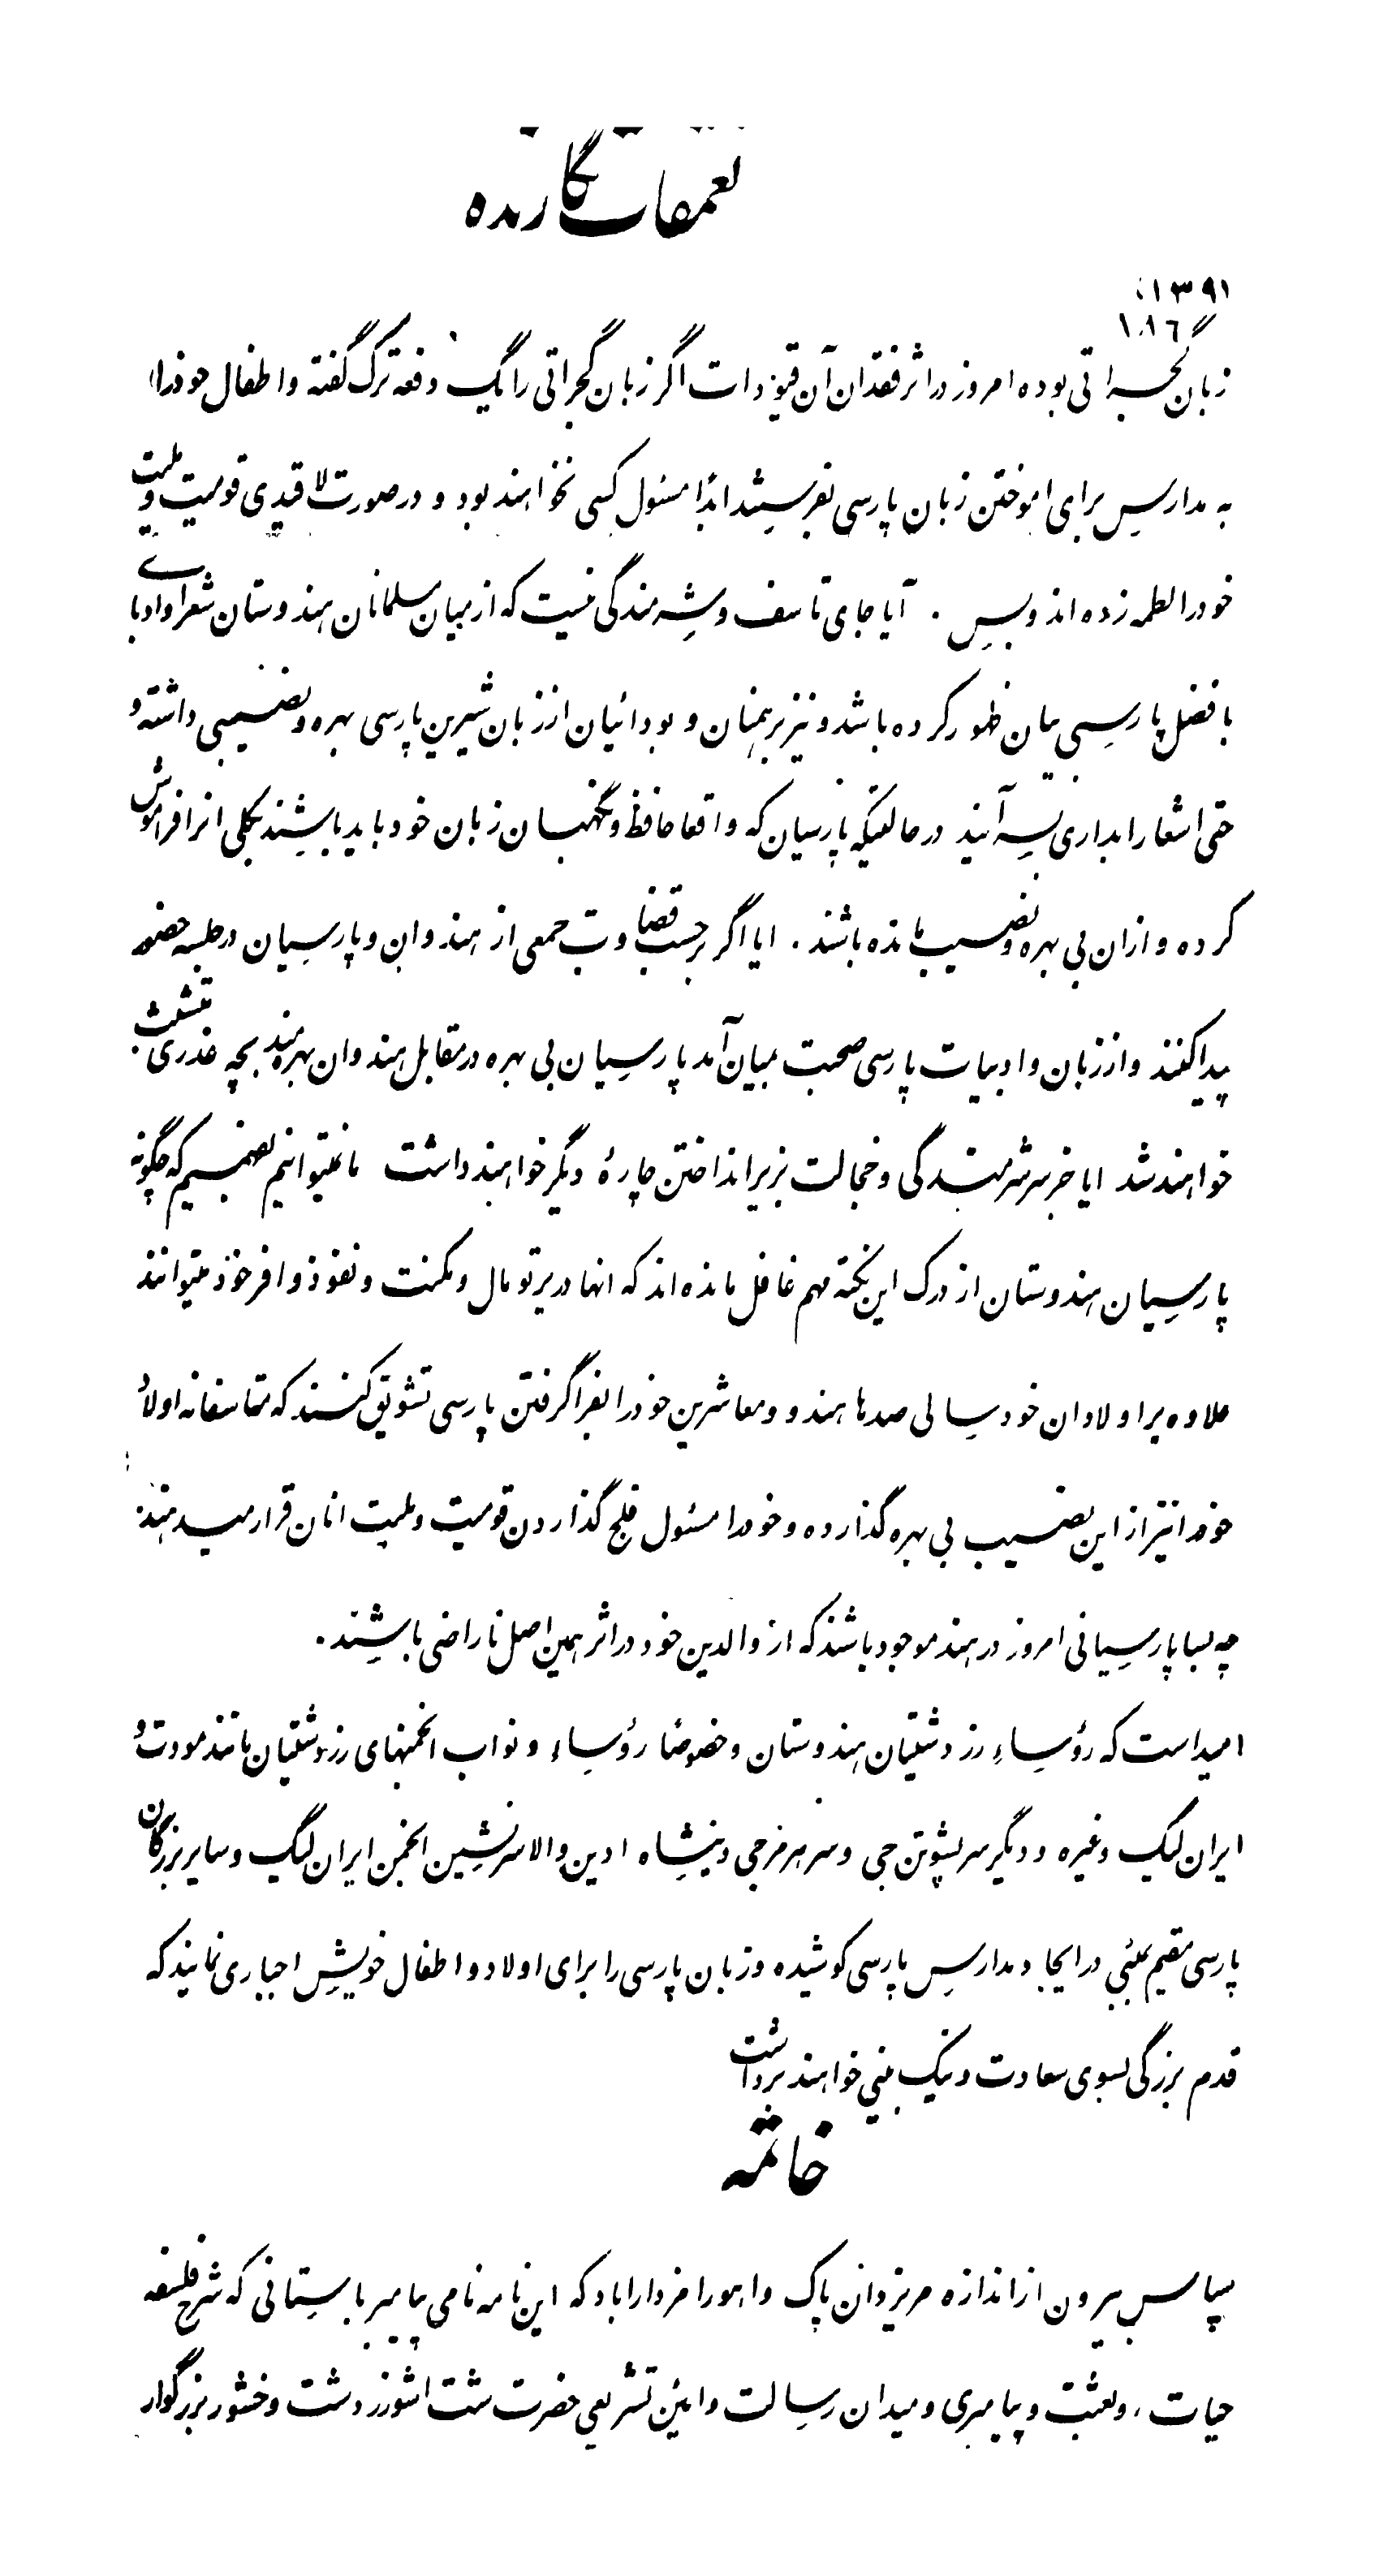 تعمقات نگارنده
۱۳۹۱
۱۰۸۶
زبان گجراتی بوده امروز در اثر فقدان آن قیودات اگر زبان گجراتی را یک دفعه ترک گفته و اطفال خود را
به مدارس برای اموختن زبان پارسی نفرستند ابدًا مسئول کسی نخواهند بود و در صورت لاقیدی قومیت و ملیت
خود را لطمه زده اند و بس . آیا جای تاسف و شرمندگی نیست که از میان مسلمانان هندوستان شعرا و ادبای
با فضل پارسی بیان ظهور کرده باشد و نیز برهمنان و بودائیان از زبان شیرین پارسی بهره و نصیبی داشته و
حتی اشعار ابداری بسرآیند در حالتیکه پارسیان که واقعا حافظ و نگهبان زبان خود باید باشند بکلی انرا فراموش
کرده و ازان بی بهره و نصیب مانده باشند . ایا اگر برحسب قضاوت جمعی از هندوان و پارسیان در جلسه حضور
پیدا کنند و از زبان و ادبیات پارسی صحبت بمیان آمد پارسیان بی بهره در مقابل هندوان بهره مند بچه عذری متشبث
خواهند شد ایا جز سر شرمندگی و خجالت بزیر انداختن چارهٔ دیگر خواهند داشت ما نمیتوانیم بفهمیم که چگونه
پارسیان هندوستان از درک این نکته مهم غافل مانده اند که انها در پرتو مال و مکنت و نفوذ وافر خود میتوانند
علاوه بر اولادان خود سالی صدها هندو و معاشرین خود را بفرا گرفتن پارسی تشویق کنند که متاسفانه اولاد
خود را نیز از این نصیب بی بهره گذارده و خود را مسئول فلج گذاردن قومیت و ملیت انان قرار میدهند
چه بسا پارسیانی امروز در هند موجود باشند که از والدین خود در اثر همین اصل ناراضی باشند .
امید است که رؤساء زردشتیان هندوستان و خصوصًا رؤساء و نواب انجمنهای زردشتیان مانند مودت و
ایران لیگ وغیره و دیگر سر پشوتن جی و سر هرمزجی دینشاه ادین والا سرنشین انجمن ایران لیگ و سایر بزرگان
پارسی مقیم بمبئی در ایجاد مدارس پارسی کوشیده و زبان پارسی را برای اولاد و اطفال خویش اجباری نمایند که
قدم بزرگی بسوی سعادت و نیک بینی خواهند برداشت
خاتمه
سپاس بیرون از اندازه مر یزدان پاک و اهورا مزدا را باد که این نامه نامی پیامبر باستانی که شرح فلسفه
حیات ، و بعثت و پیامبری و میدان رسالت و ائین تشریعی حضرت شت اشوزردشت وخشور بزرگوار